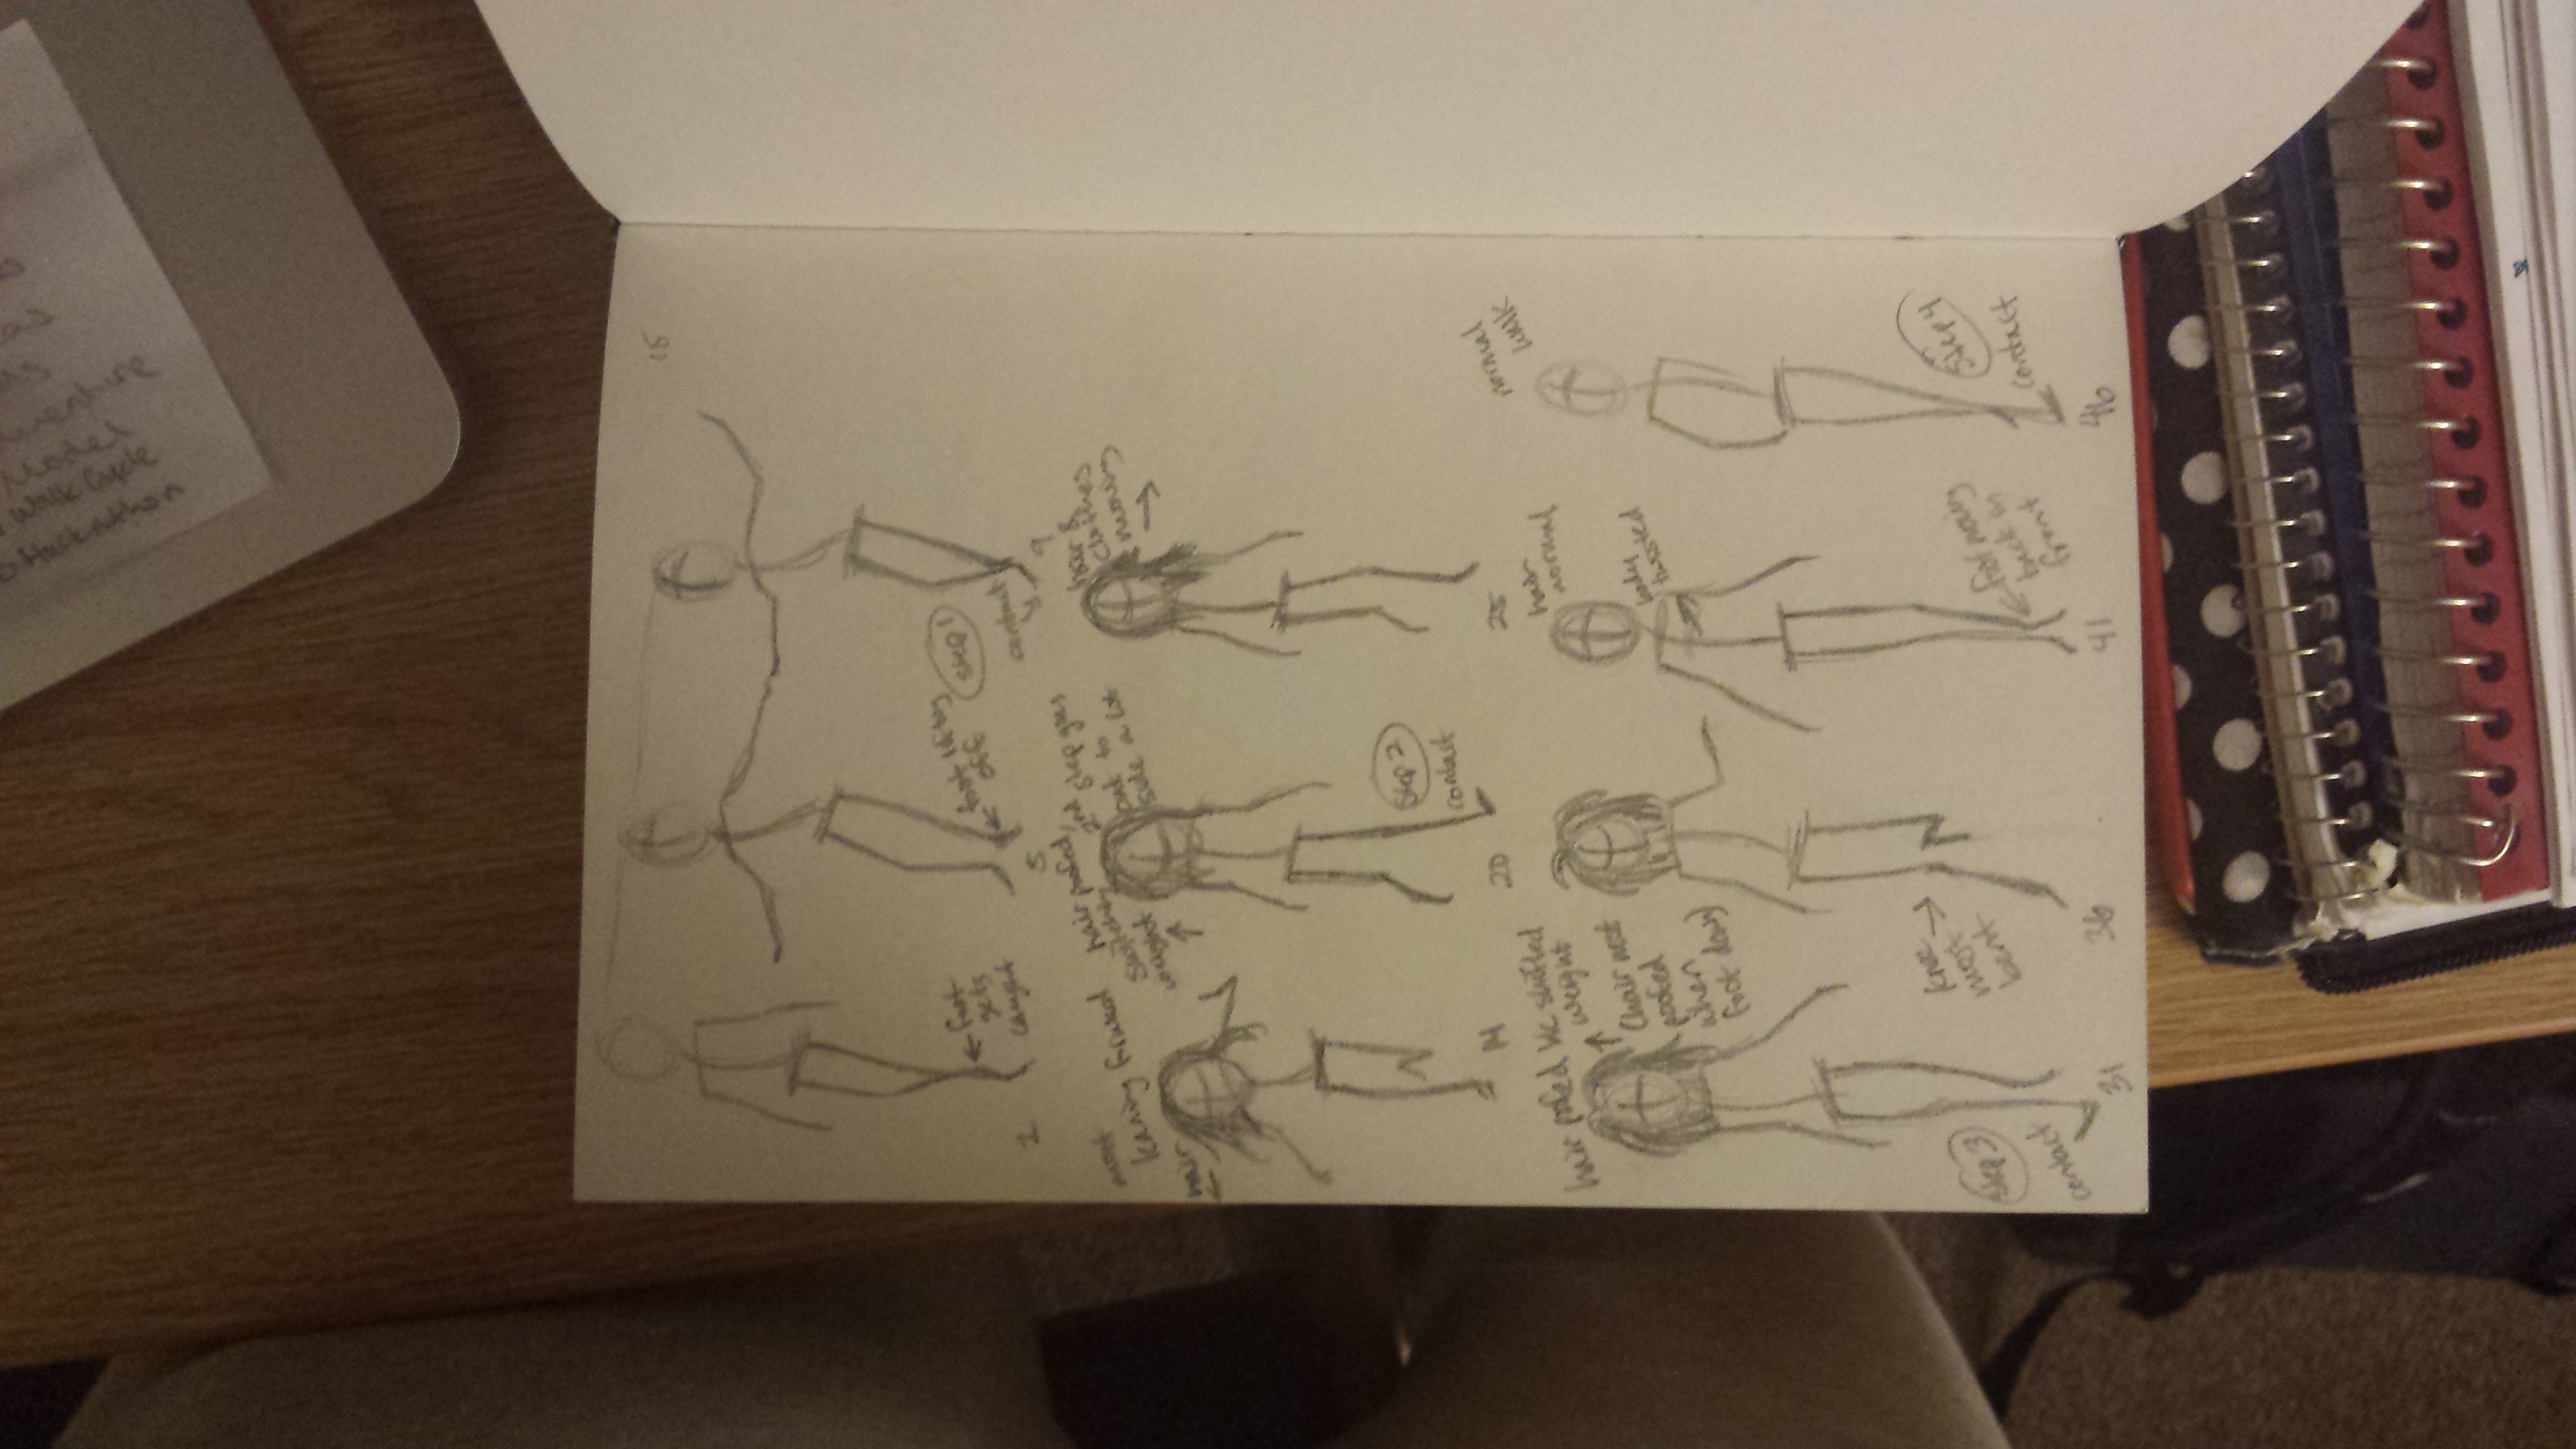 walk cycle
Hackathon
15
foot
gets
caught
1
foot lifting
off
5
Step 1
contact
9
most
leaning forward
hair
14
hair poofed,
switching
weight
2nd step goes
out to
side a lot
Step 2
contact
20
hair &
clothes
moving
25
hair pofed bc shifted
weight
(hair most
poofed
when
foot down)
Step 3
contact
31
knee
most
bent
36
hair
normal
body
twisted
foot moving
back in
front
41
normal
walk
Step 4
contact
46